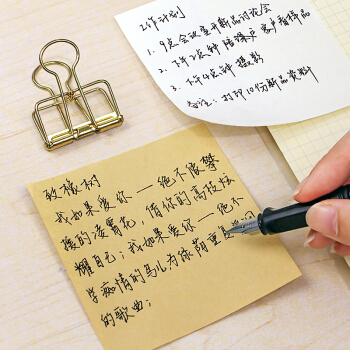 工作计划
1. 9点会议室开新品讨论会
2. 下午2点钟 陪课户客户看样品
3. 下午4点钟 摄影
备注：打印10份新品资料
致橡树
我如果爱你——绝不像攀
援的凌霄花，借你的高枝炫
耀自己；我如果爱你——绝不
学痴情的鸟儿为绿荫重复
的歌曲；